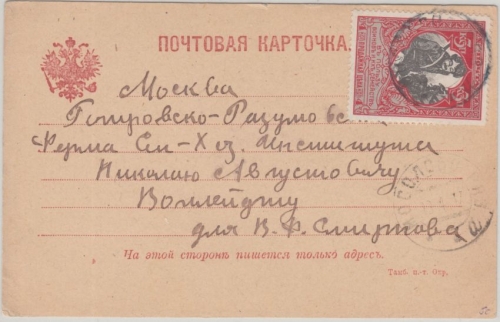 ПОЧТОВАЯ КАРТОЧКА.
Москва
Петровско-Разумовское
Ферма Сп-Хоз. Института
Николаю Августовичу
для В. Ф. Смирнова
На этой сторонѣ пишется только адресъ.
Тамб. п.-т. Окр.